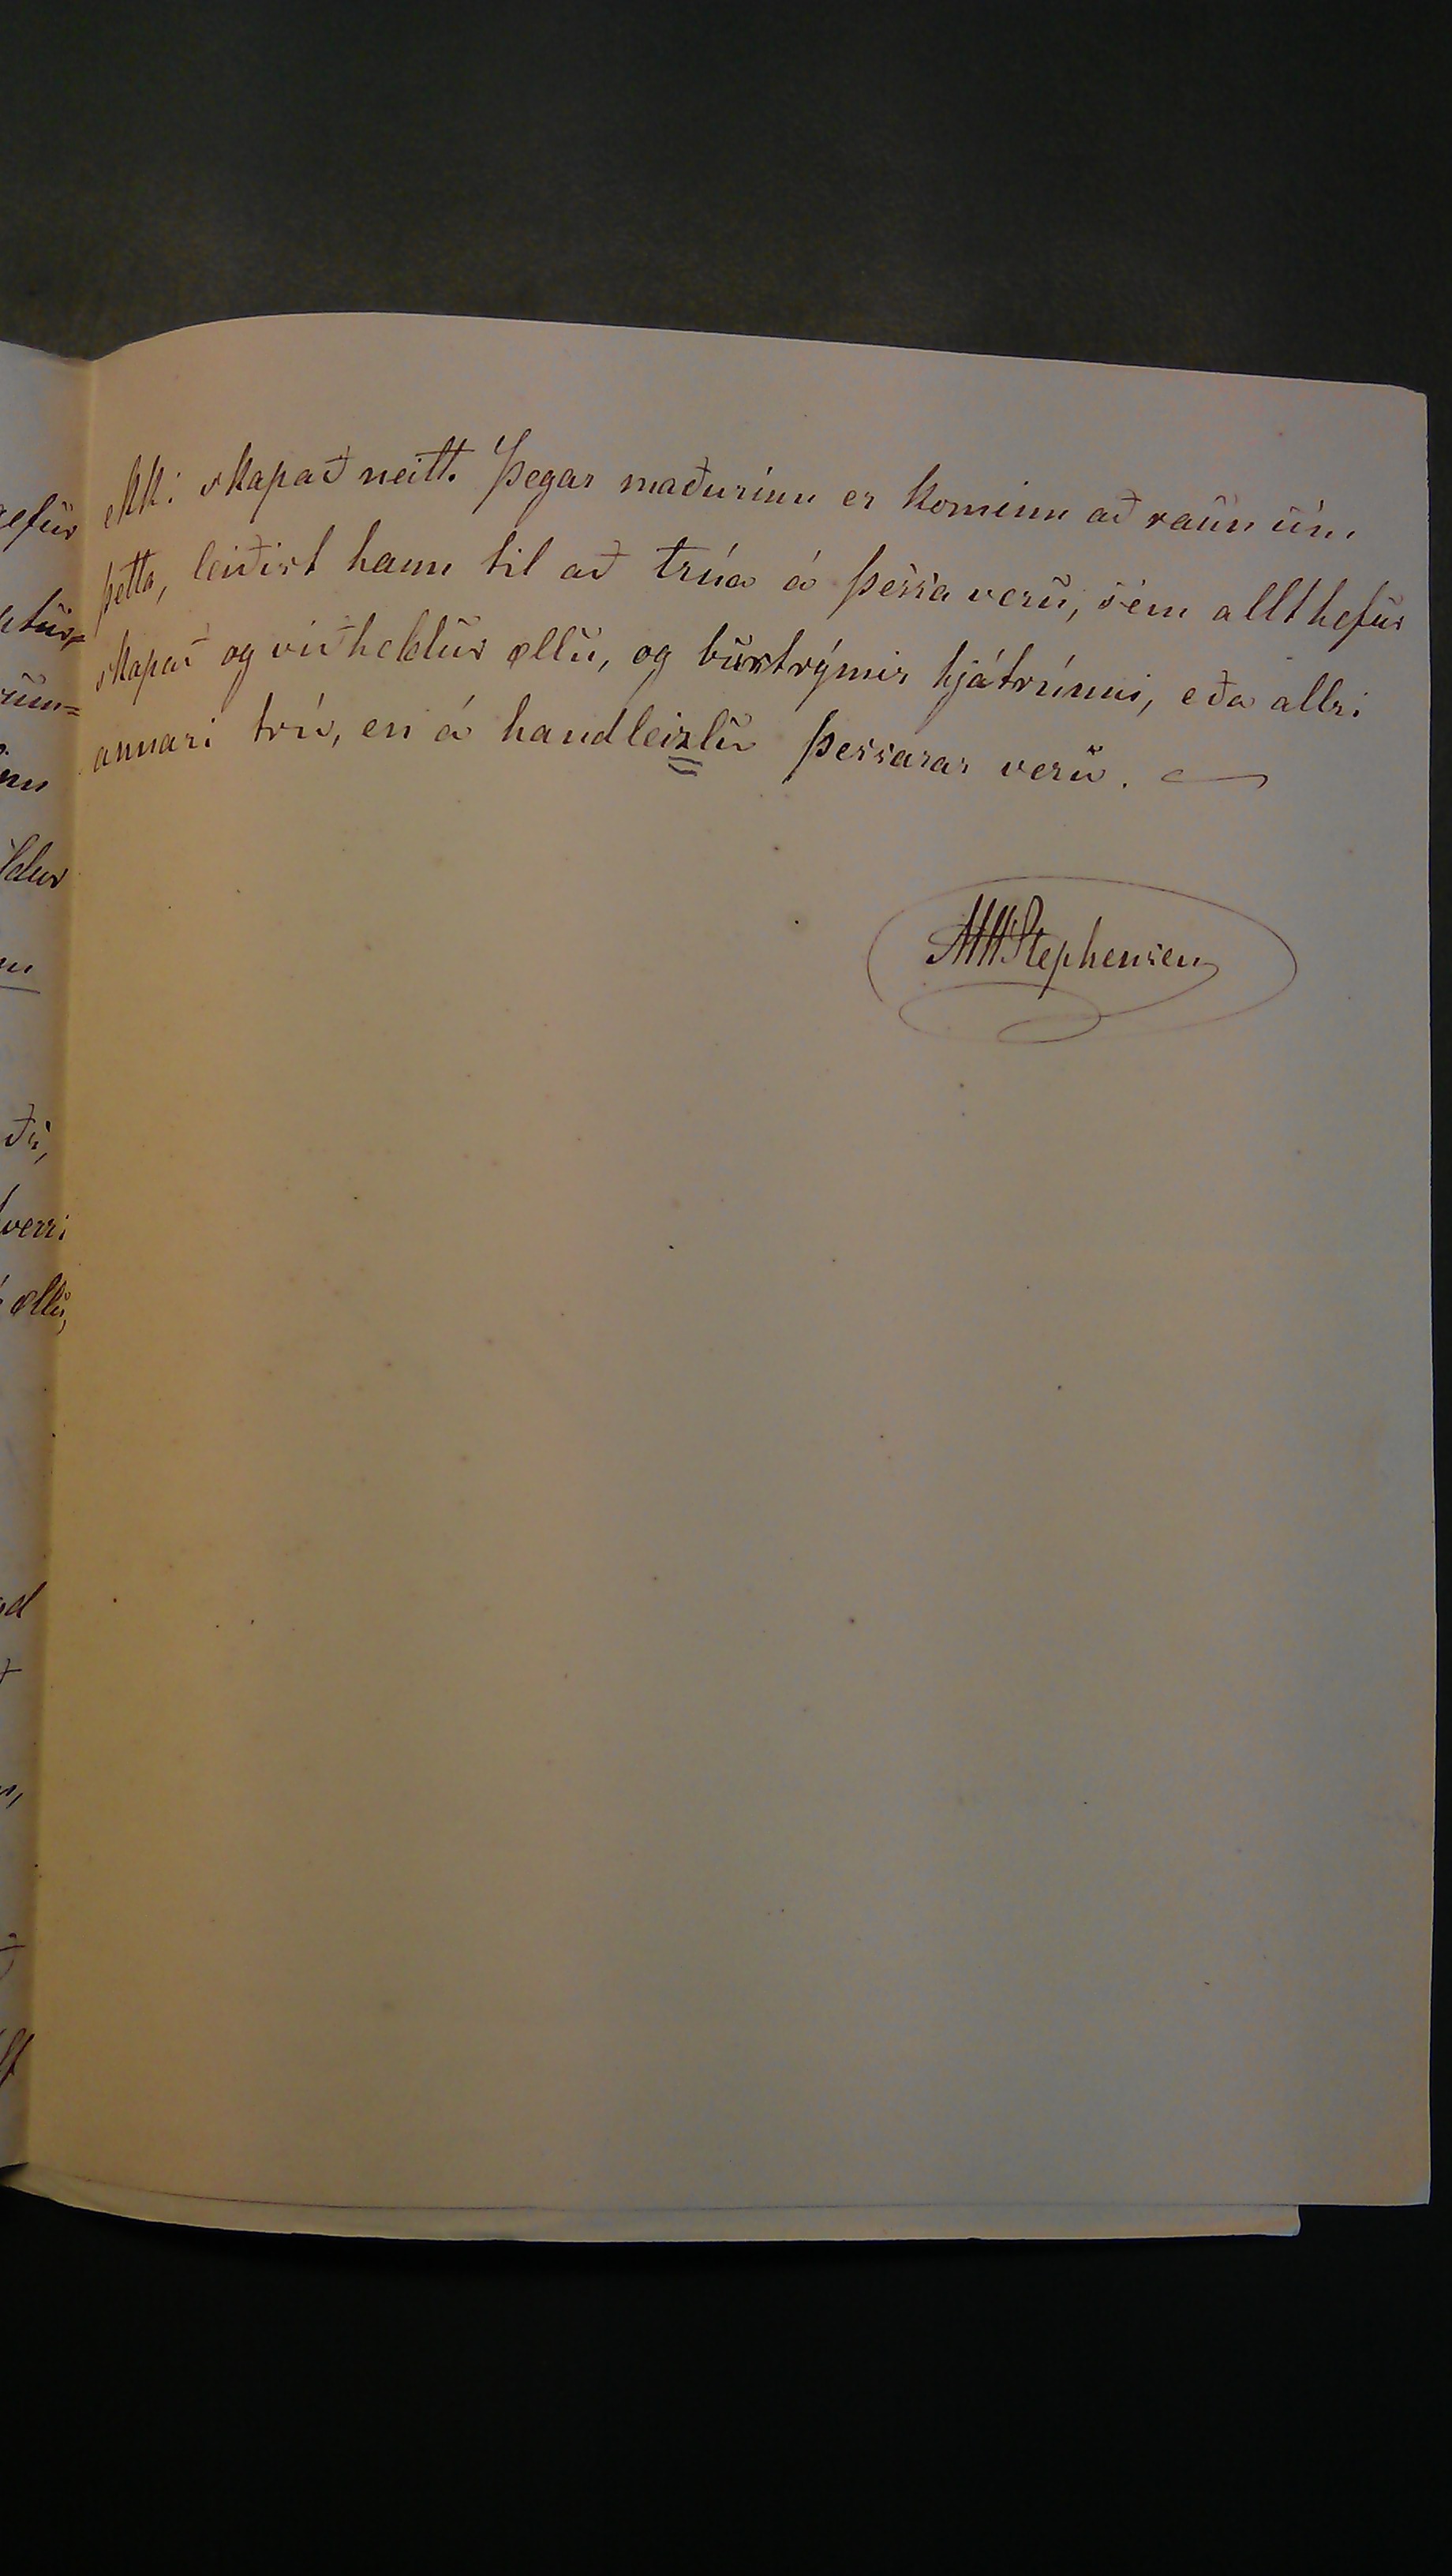 ekki skapað neitt. Þegar maðurinn er kominn að raun um
þetta, leiðist hann til að trúa á þessa veru, sem allt hefur
skapað og viðheldur øllu, og burtrýmir hjátrúnni, eða allri
annari trú, en á handleizlu þessarar veru.
Stephensen